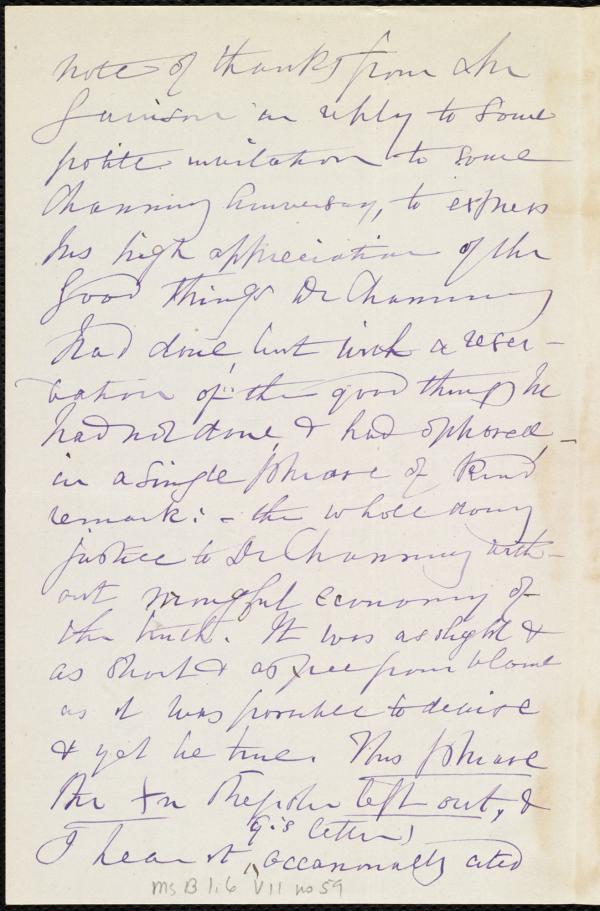 note of thanks from Mr
Garrison in reply to some
polite invitation to some
Channing Anniversary, to express
his high appreciation of the
good things Dr Channing
had done, but with a reser-
vation of the good things he
had not done, & had opposed,-
in a single phrase of kind
remark: - the whole doing
justice to Dr Channing with-
out wrongful economy of
the truth. It was as slight &
as short & as free from blame
as it was possible to devise
& yet be true. This phrase
the Xn Register left out, &
G's letter)
I hear it ^ occasionally cited
Ms B 1.6 V11 no 59